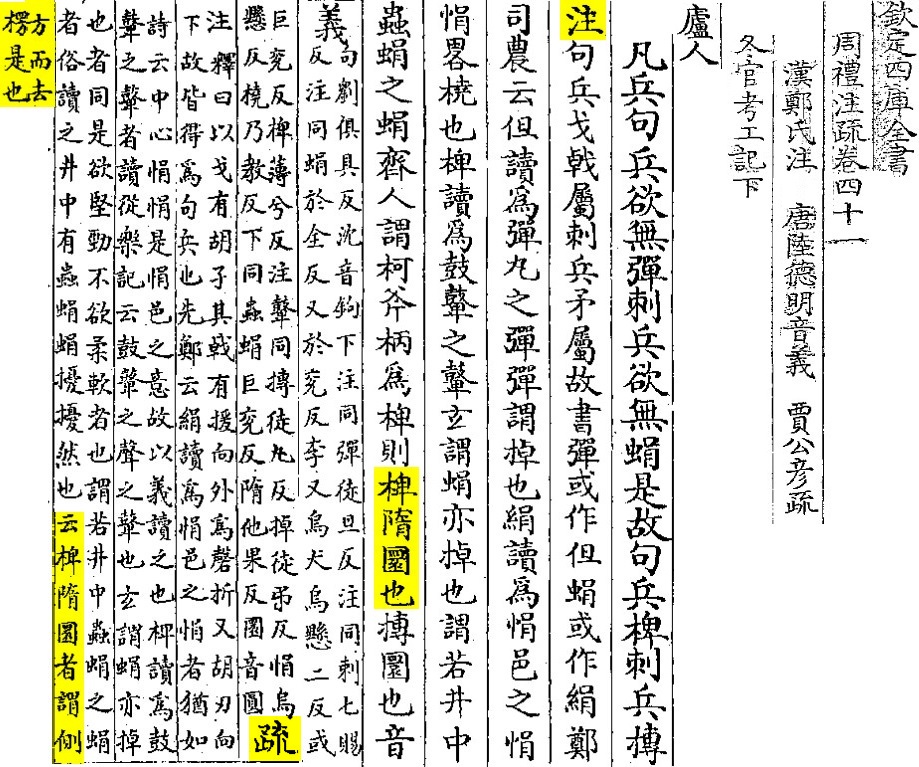 欽定四庫全書
周禮注疏卷四十一
漢鄭氏注 唐陸德明音義 賈公彦疏
冬官考工記下
廬人
凡兵句兵欲無彈刺兵欲無蜎是故句兵椑刺兵摶
注句兵戈戟屬刺兵矛屬故書彈或作但蜎或作絹鄭
司農云但讀爲彈丸之彈彈謂掉也絹讀爲悁邑之悁
悁畧橈也椑讀爲鼓鼙之鼙玄謂蜎亦掉也謂若井中
蟲蜎之蜎齊人謂柯斧柄爲椑則椑隋圜也摶圜也音
義
句劉俱具反沈音鉤下注同彈徒旦反注同刺七賜
反注同蜎於全反又於兖反李又烏犬烏懸二反或
巨兖反椑薄兮反注鼙同摶徒丸反掉徒弔反悁烏
懸反橈乃教反下同蟲蜎巨兖反隋他果反圜音圓
疏
注釋曰以戈有胡孑其戟有援向外爲磬折又胡刃向
下故皆得爲句兵也先鄭云絹讀爲悁邑之悁者猶如
詩云中心悁悁是悁邑之意故以義讀之也椑讀爲鼓
鼙之鼙者讀從樂記云鼓鼙之聲之鼙也玄謂蜎亦掉
也者同是欲堅勁不欲柔軟者也謂若井中蟲蜎之蜎
者俗讀之井中有蟲蜎蜎擾擾然也云椑隋圜者謂側
方而去
楞是也